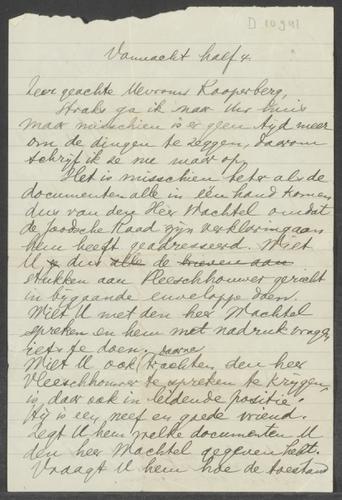 D 10941
Vannacht half 4.
Zeer geachte Mevrouw Kooperberg,
Straks ga ik naar Uw huis
maar misschien is er geen tijd meer
om de dingen te zeggen, daarom
schrijf ik ze me maar op.
Het is misschien beter als de
documenten alle in één hand komen
dus van den Heer Wachtel omdat
de Joodsche Raad zijn verklaring aan
hem heeft geadresseerd. Wilt
U dus alle de brieven aan
stukken aan Vleeschhouwer gericht
in bijgaande enveloppe doen.
Wilt U met den heer Wachtel
spreken en hem met nadruk vragen
iets te doen,
Wilt U ook trachten den heer
Vleeschhouwer te spreken te krijgen,
is daar ook in leidende positie.
Hij is een neef en goede vriend.
Zegt U hem welke documenten U
den heer Wachtel gegeven hebt.
Vraagt U hem hoe de toestand